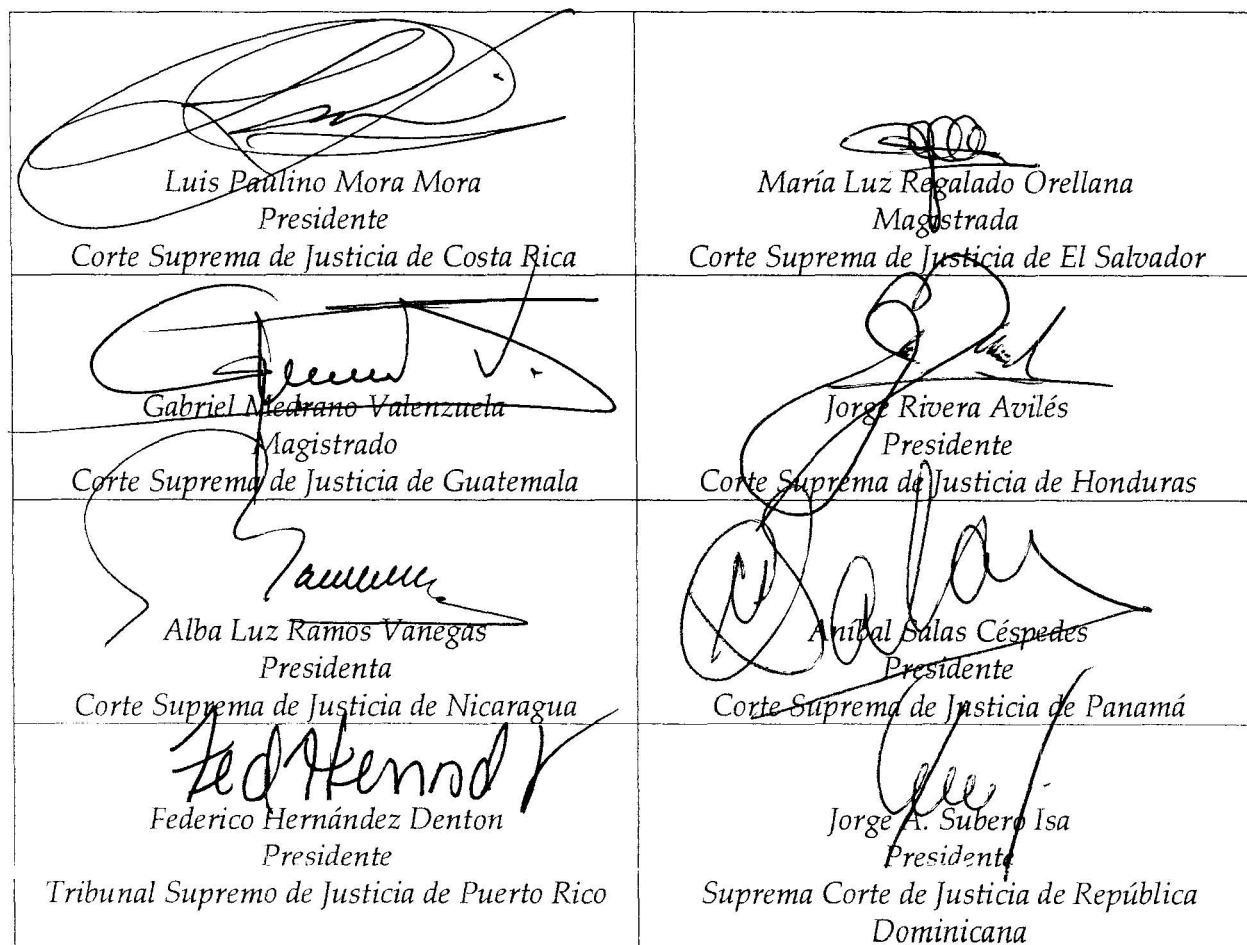 Luis Paulino Mora Mora
Presidente
Corte Suprema de Justicia de Costa Rica
María Luz Regalado Orellana
Magistrada
Corte Suprema de Justicia de El Salvador
Gabriel Medrano Valenzuela
Magistrado
Corte Suprema de Justicia de Guatemala
Jorge Rivera Avilés
Presidente
Corte Suprema de Justicia de Honduras
Alba Luz Ramos Vanegas
Presidenta
Corte Suprema de Justicia de Nicaragua
Salas
Aníbal Salas Céspedes
Presidente
Corte Suprema de Justicia de Panamá
Federico Hernández Denton
Presidente
Tribunal Supremo de Justicia de Puerto Rico
Jorge A. Subero Isa
Presidente
Suprema Corte de Justicia de República
Dominicana